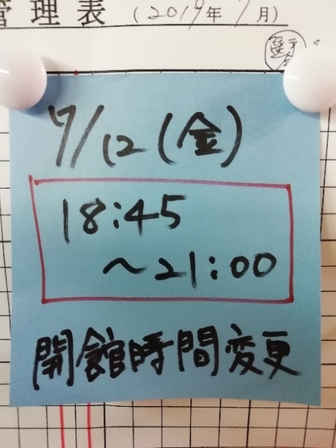 管理表 (2019年7月)
7/12(金)
18:45
~21:00
開館時間変更